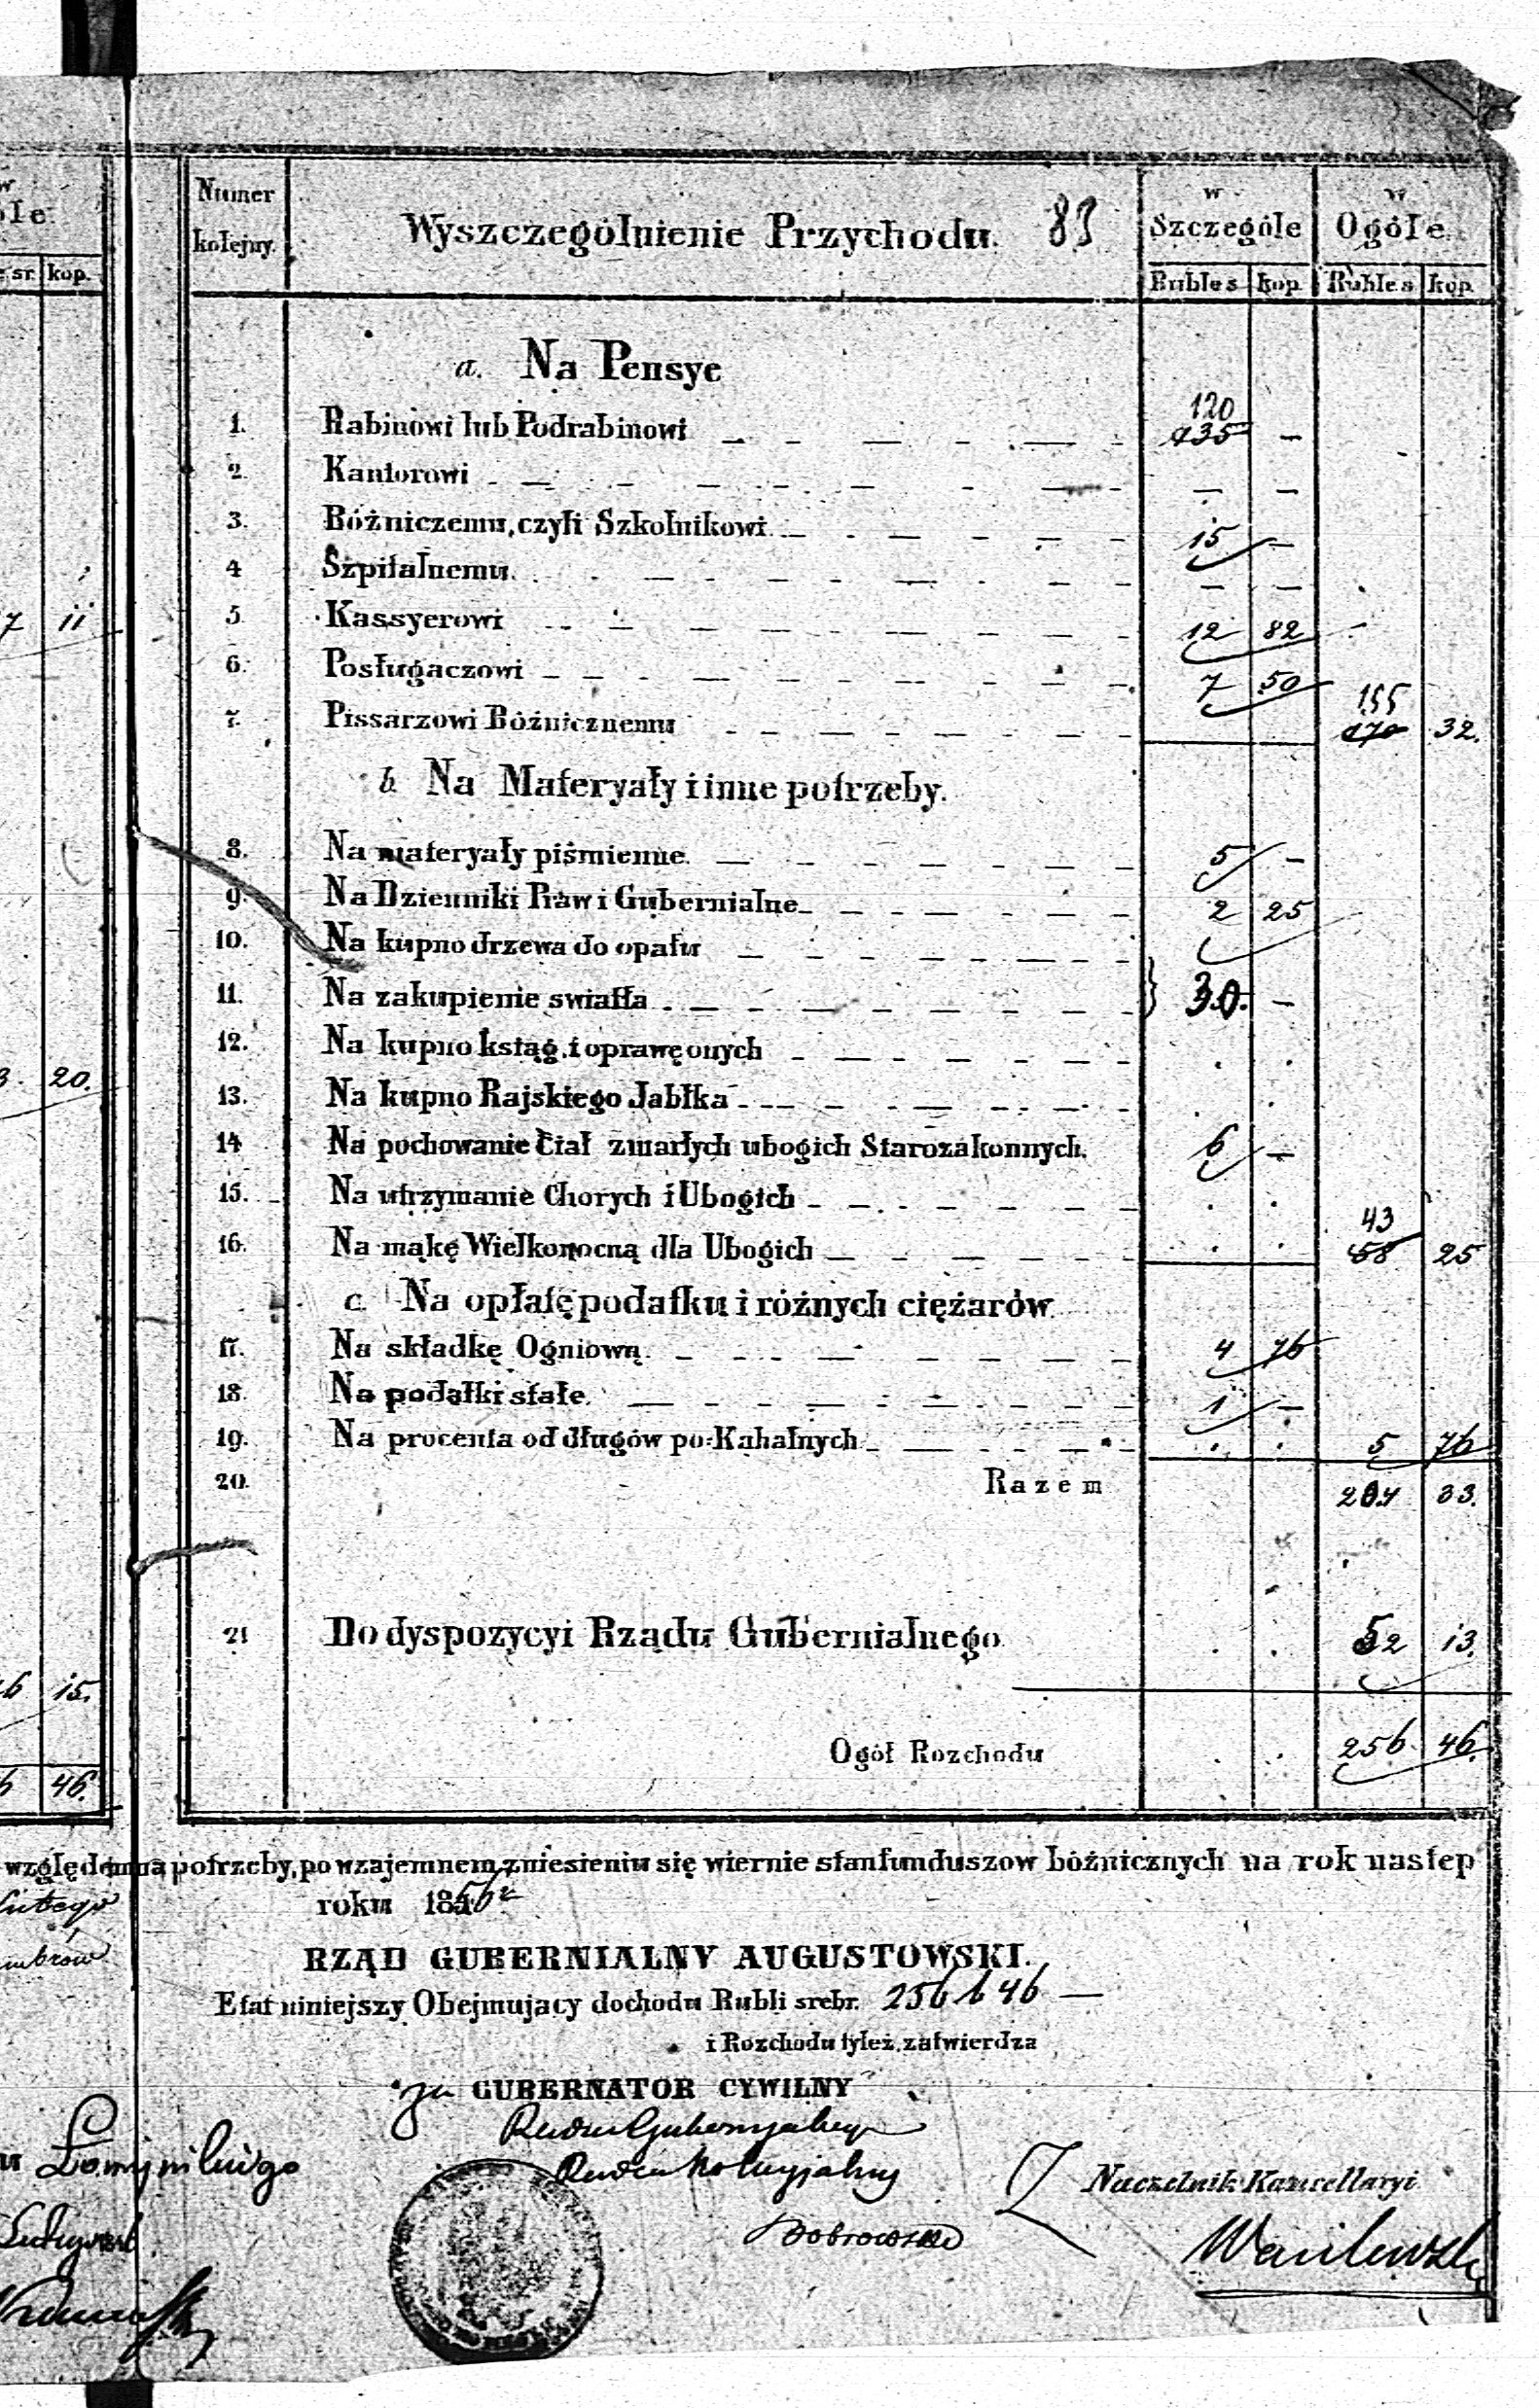 w
ole
sr. kop.
7 11
3. 20.
6 15.
6 46.
Numer kolejny.
Wyszczególnienie Przychodu. 83
w Szczególe
w Ogóle
Rubles kop Rubles kop.
a. Na Pensye
1. Rabinowi lub Podrabinowi 120 135 –
2. Kantorowi – –
3. Bóżniczemu, czyli Szkolnikowi 15 –
4 Szpitalnemu – –
5 Kassyerowi 12 82
6. Posługaczowi 7 50
7. Pissarzowi Bóżnicznemu 155 170 32.
b. Na Materyały i inne potrzeby.
8. Na materyały piśmienne. 5 –
9. Na Dzienniki Praw i Gubernialne 2 25
10. Na kupno drzewa do opału
11. Na zakupienie swiatła } 30. –
12. Na kupno ksiąg i oprawę onych . .
13. Na kupno Rajskiego Jabłka . .
14 Na pochowanie Ciał zmarłych ubogich Starozakonnych. 6 –
15. Na utrzymanie Chorych i Ubogich . .
16. Na mąkę Wielkonocną dla Ubogich . . 43 58 25
c. Na opłatę podatku i różnych ciężarów
17. Na składkę Ogniową. 4 76
18. Na podatki stałe. 1 –
19. Na procenta od długów po-Kahalnych . . 5 76
20. Razem 204 33.
21 Do dyspozycyi Rządu Gubernialnego . . 52 13.
Ogół Rozchodu . . 256. 46.
względemna potrzeby, po wzajemnem zniesieniu się wiernie stanfunduszow bóżnicznych na rok nastep
Lutego
roku 1856
mbrow
RZĄD GUBERNIALNY AUGUSTOWSKI.
Etat niniejszy Obejmujący dochodu Rubli srebr. 256 k 46 —
i Rozchodu tyleż, zatwierdza
za GUBERNATOR CYWILNY
Radca Gubernjalny
Łomżyńskiego
Radca Kolegjalny
Naczelnik Kancellaryi
Dobrowolski
Wasilewski